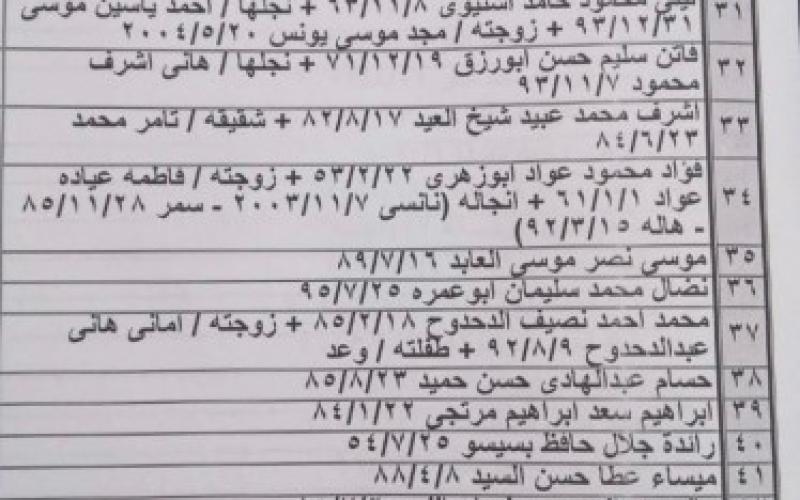 ٣١ ليلى محمود حامد اشتيوى ٦٣/١١/٨ + نجلها / احمد ياسين موسى
٩٣/١٢/٣١ + زوجته / مجد موسى يونس ٢٠٠٤/٥/٢٠
٣٢ فاتن سليم حسن ابورزق ٧١/١٢/١٩ + نجلها / هانى اشرف
محمود ٩٣/١١/٧
٣٣ اشرف محمد عبيد شيخ العيد ٨٢/٨/١٧ + شقيقه / تامر محمد
٨٤/٦/٢٣
٣٤ فؤاد محمود عواد ابوزهرى ٥٣/٢/٢٢ + زوجته / فاطمه عياده
عواد ٦١/١/١ + انجاله (نانسى ٢٠٠٣/١١/٧ - سمر ٨٥/١١/٢٨
- هاله ٩٢/٣/١٥)
٣٥ موسى نصر موسى العابد ٨٩/٧/١٦
٣٦ نضال محمد سليمان ابوعمره ٩٥/٧/٢٥
٣٧ محمد احمد نصيف الدحدوح ٨٥/٢/١٨ + زوجته / امانى هانى
عبدالدحدوح ٩٢/٨/٩ + طفلته / وعد
٣٨ حسام عبدالهادى حسن حميد ٨٥/٨/٢٣
٣٩ ابراهيم سعد ابراهيم مرتجي ٨٤/١/٢٢
٤٠ رائدة جلال حافظ بسيسو ٥٤/٧/٢٥
٤١ ميساء عطا حسن السيد ٨٨/٤/٨